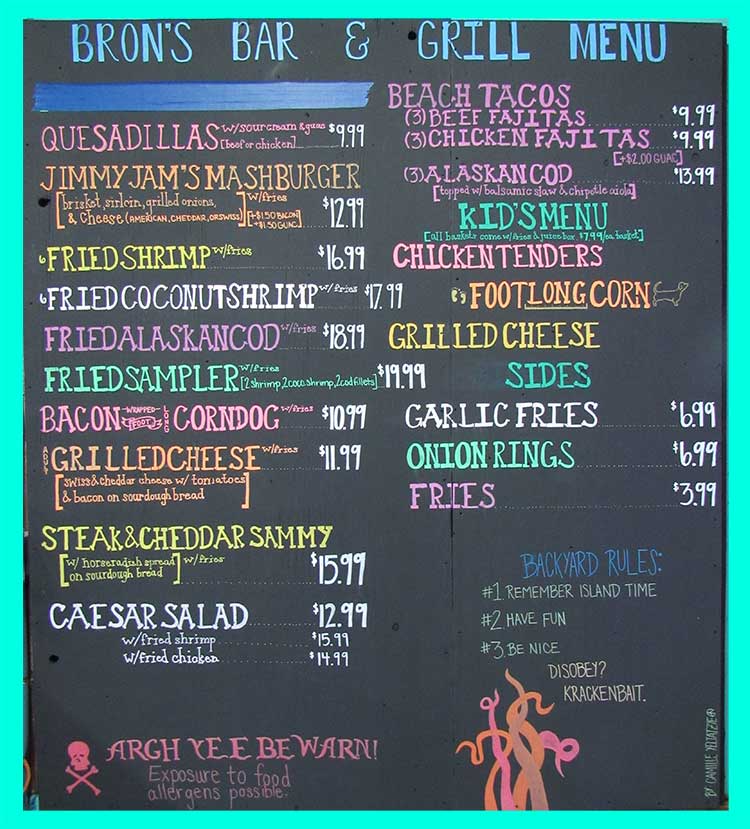 BRON'S BAR & GRILL MENU
QUESADILLAS w/sour cream & guac [beef or chicken] $9.99
JIMMY JAM'S MASHBURGER
[brisket, sirloin, grilled onions, & cheese (AMERICAN, CHEDDAR, OR SWISS)] w/fries [+$1.50 BACON +$1.50 GUAC] $12.99
6 FRIED SHRIMP w/fries $16.99
6 FRIED COCONUT SHRIMP w/fries $17.99
FRIED ALASKAN COD w/fries $18.99
FRIED SAMPLER w/fries [2 shrimp, 2 coco shrimp, 2 cod fillets] $19.99
BACON WRAPPED FOOT LONG CORNDOG w/fries $10.99
ADULT GRILLED CHEESE w/fries $11.99
[swiss & chedar cheese w/ tomatoes
& bacon on sourdough bread]
STEAK & CHEDDAR SAMMY
[w/ horseradish spread on sourdough bread] w/fries $15.99
CAESAR SALAD $12.99
w/fried shrimp $15.99
w/fried chicken $14.99
ARGH YEE BE WARN!
Exposure to food
allergens possible.
BEACH TACOS
(3) BEEF FAJITAS $9.99
(3) CHICKEN FAJITAS $9.99
[+$2.00 GUAC]
(3) ALASKAN COD $13.99
[topped w/ balsamic slaw & chipotle aiola]
KID'S MENU
[all baskets come w/fries & juice box $7.99/ea basket]
CHICKEN TENDERS
FOOT LONG CORN
GRILLED CHEESE
SIDES
GARLIC FRIES $6.99
ONION RINGS $6.99
FRIES $3.99
BACKYARD RULES:
#1. REMEMBER ISLAND TIME
#2 HAVE FUN
#3. BE NICE
DISOBEY?
KRACKENBAIT.
BY CAMILLE